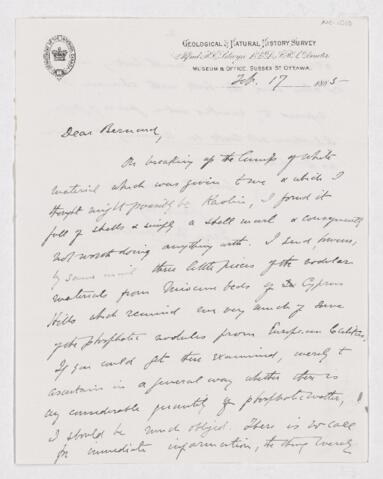 GEOLOGICAL & NATURAL HISTORY SURVEY
MUSEUM & OFFICE, SUSSEX ST OTTAWA.
Feb. 17 1885
Dear Bernard,
On breaking up the lumps of white
material which was given to me & which I
thought might possibly be Kaolin, I found it
full of shells & simply a shell marl & consequently
not worth doing anything with. I send
by same mail three little pieces of the nodular
materials from Miocene beds of the Cypress
Hills which remind me very much of some
of the phosphatic nodules from European localities.
If you could get these examined, merely to
ascertain in a general way whether there is
any considerable quantity of phosphatic matter,
I should be much obliged. There is no call
for immediate information, the thing merely